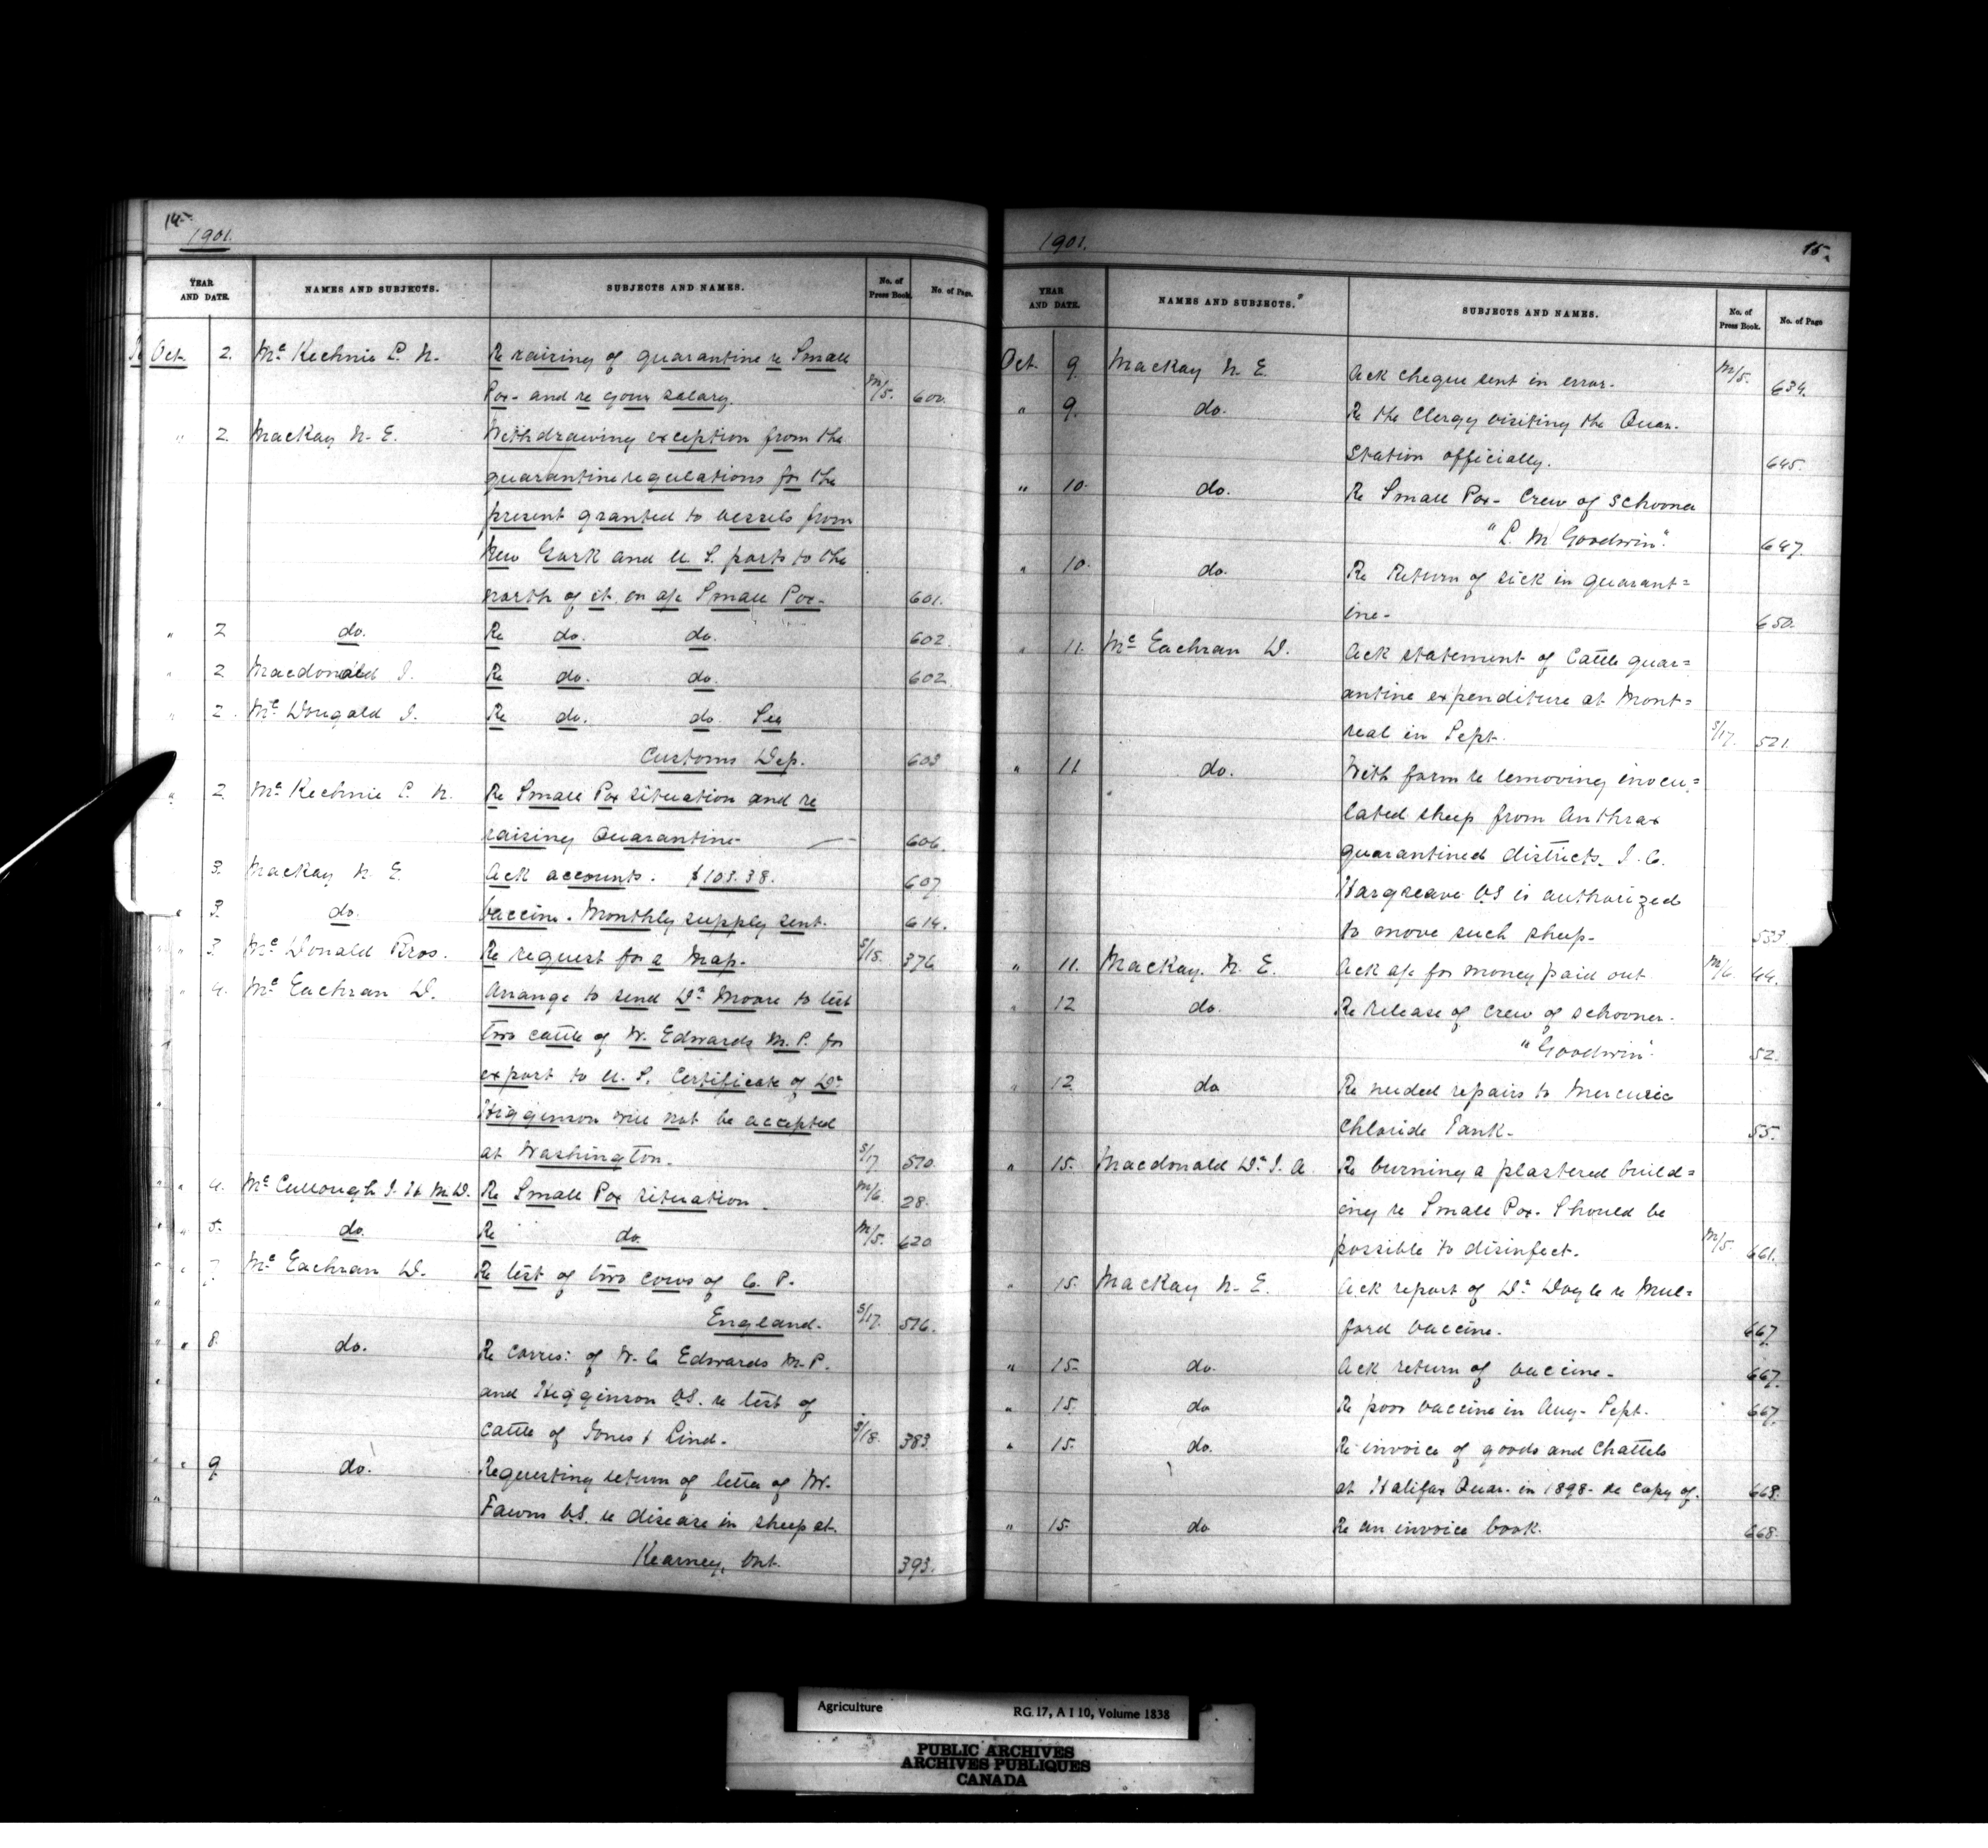 14.
1901.
YEAR AND DATE. NAMES AND SUBJECTS. SUBJECTS AND NAMES. No. of Press Book. No. of Page.
Oct. 2. Mc Kechnie P. N. Re raising of quarantine re Small
Pox- and re your salary. M/5. 600.
" 2. Mackay N. E. Withdrawing exception from the
quarantine regulations for the
present granted to vessels from
New York and U. S. ports to the
north of it, on a/c Small Pox- 601.
" 2 do. Re do. do. 602.
" 2 Macdonald J. Re do. do. 602.
" 2. Mc Dougald J. Re do. do. See
Customs Dep. 603
" 2. Mc Kechnie P. N. Re Small Pox situation and re
raising Quarantine- 606.
3. Mackay N. E. Ack accounts. $103.38. 607.
" 3. do. Vaccine. Monthly supply sent. 614.
" 3. Mc Donald Bros. Re request for a Map. S/18. 376
" 4. Mc Eachran D. Arrange to send Dr Moore to test
two cattle of W. Edwards M. P. for
export to U. S. Certificate of Dr
Higginson will not be accepted
at Washington. S/17 570.
" 4. Mc Cullough J. H. M.D. Re Small Pox situation. M/6. 28.
" 5. do. Re do. M/5. 620
" 7. Mc Eachran D. Re test of two cows of C. P.
England. S/17. 576.
" 8. do. Re corres: of W. C Edwards M. P.
and Higginson V.S. re test of
cattle of Jones & Lind. S/18. 383.
" 9 do. Requesting return of letter of W.
Fawns V.S. re disease in sheep at
Kearney, Ont. 393.
1901. 15.
YEAR AND DATE. NAMES AND SUBJECTS. SUBJECTS AND NAMES. No. of Press Book. No. of Page
Oct. 9. Mackay N. E. Ack cheque sent in error. M/5. 634.
" 9. do. Re the Clergy visiting the Quar.
Station officially. 645.
" 10. do. Re Small Pox- Crew of schooner
"P. M. Goodwin". 647.
" 10. do. Re Return of sick in quarant=
ine- 650.
" 11. Mc Eachran D. Ack statement of Cattle quar=
antine expenditure at Mont=
real in Sept. S/17. 521.
" 11 do. With form re removing inocu=
lated sheep from Anthrax
quarantined districts. J. C.
Hargreave V.S is authorized
to move such sheep. 533.
" 11. Mackay. N. E. Ack a/c for money paid out M/6. 44.
" 12 do. Re release of crew of schooner
"Goodwin". 52.
" 12. do Re needed repairs to Mercuric
Chloride Tank. 55.
" 15. Macdonald Dr J. A. Re burning a plastered build=
ing re Small Pox. Should be
possible to disinfect. M/5. 661.
" 15. Mackay N. E. Ack report of Dr Doyle re Mul=
ford vaccine. 667.
" 15. do. Ack return of vaccine. 667.
" 15. do Re poor vaccine in Aug- Sept. 667.
" 15. do. Re invoice of goods and chattels
at Halifax Quar. in 1898- re copy of. 668.
" 15. do Re an invoice book. 668.
Agriculture RG. 17, A I 10, Volume 1838
PUBLIC ARCHIVES
ARCHIVES PUBLIQUES
CANADA